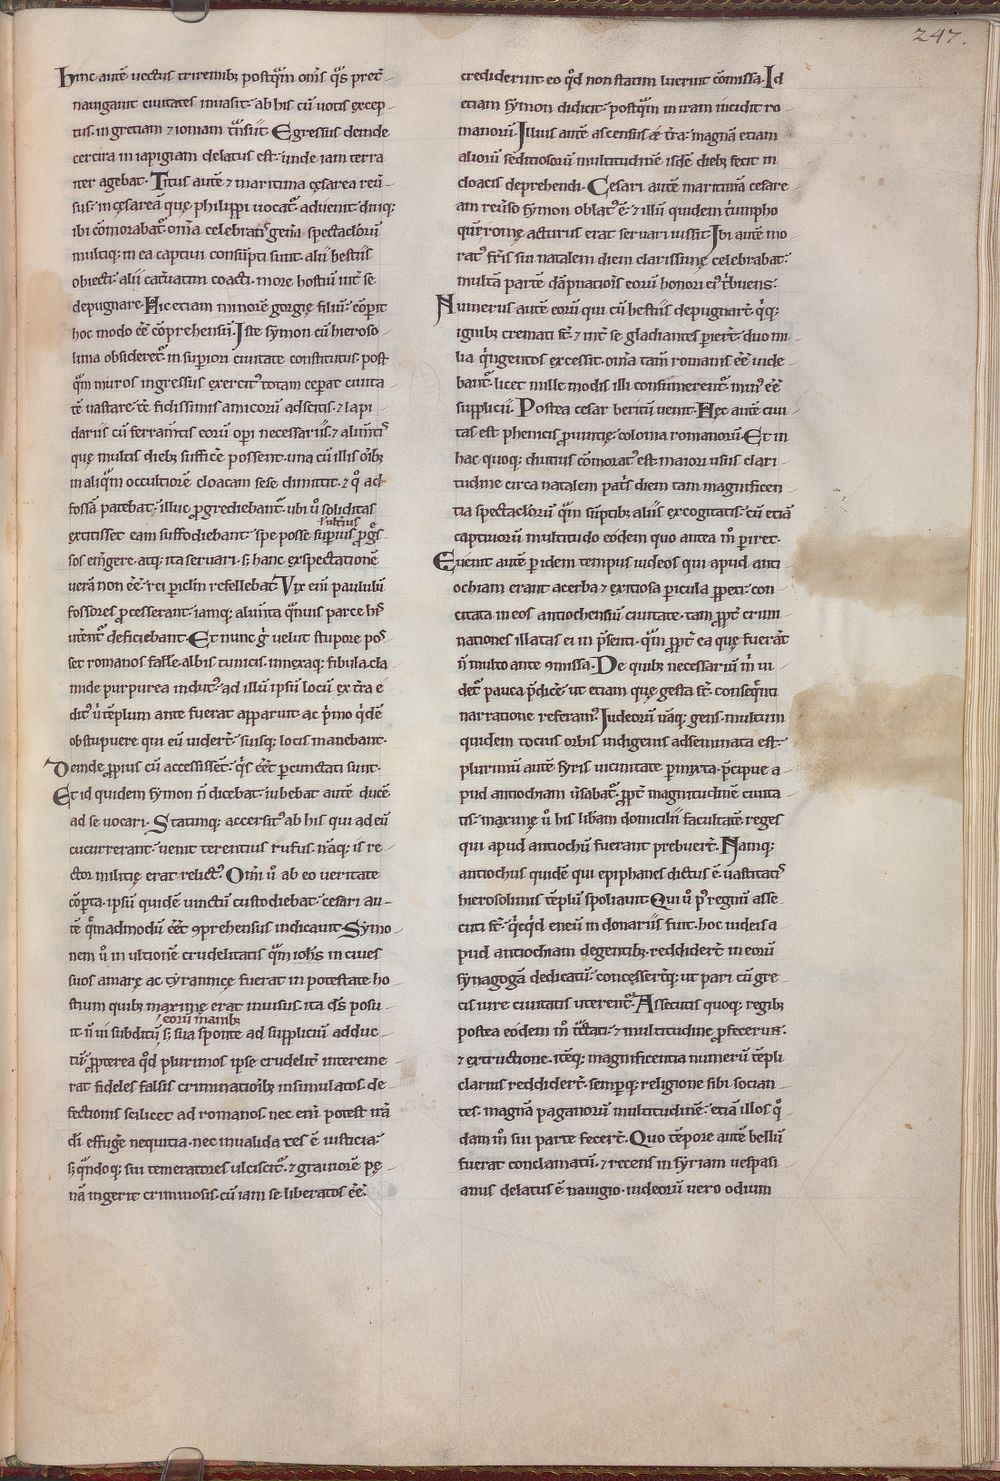 247.
hinc autē uectus triremibꝫ postq̄m om̄s q̄s pret̄
nauigauit ciuitates inuasit· ab his cū uotis excep
tus· in gretiam ⁊ ioniam tn̄siit Egressus deinde
cercira in iapigiam delatus est· inde iam terra
iter agebat· Titus autē ⁊ maritima cęsarea reū
sus· in cęsareā quę philippi uocat᷒ aduenit· diuqꝫ
ibi cōmorabat᷒ om̄a celebrans gen̄a spectaclorū
multiqꝫ in ea captiui consūpti sunt· alii bestiis
obiecti· alii cat̄uatim coacti· more hostiū int̄ se
depugnare· Hic etiam minorē gorgię filiū· cōperit
hoc modo eē cōprehensū· Iste symon cū hieroso
lima obsideret᷒ in superiori ciuitate constitutus· post
q̄m muros ingressus exercit᷒ totam ceperat ciuita
tē uastare· tc̄ fidissimis amicorū adscitis· ⁊ lapi
dariis cū ferram̄tis eorū operi necessariis· ⁊ alim̄tis
quę multis diebꝫ sufficē possent· una cū illis om̄ibꝫ
in aliq̄m occultiorē cloacam sese dimittit· ⁊ q̊ ad
fossā patebat· illuc progrediebant᷒· ubi ū soliditas
extitisset eam suffodiebant· spe posse superius progres
ł ult̄ius
sos em̄gere atqꝫ ita seruari· sꝫ hanc exspectationē
uerā non eē· rei periclm̄ refellebat· Vix enī paululū
fossores processerant· iamqꝫ alim̄ta q̄muis parce his
utentibꝫ deficiebant· Et nunc g̊ uelut stupore pos
set romanos falle· albis tunicis· innexaqꝫ fibula cla
mide purpurea indut᷒· ad illū ipsū locū ex t̄ra e
dit᷒ ubi tēplum ante fuerat apparuit· ac primo quidē
obstupuere qui eū uidert̄· suisqꝫ locis manebant·
Deinde propius cū accessissent· q̄s eēt percunctati sunt·
Et id quidem symon n̄ dicebat· iubebat autē ducē
ad se uocari· Statimqꝫ accersit᷒ ab his qui ad eū
cucurrerant· uenit terentius rufus· nāqꝫ is re
ctor militię erat relict᷒· Om̄i ū ab eo ueritate
cōperta· ipsū quidē uinctū custodiebat· cesari au
tē quemadmodū eēt 9prehensus indicauit· Symo
nem ū in ultionē crudelitatis q̄m ioh̄s in ciues
suos amarę ac tyrannicę fuerat in potestate ho
stium quibꝫ maximę erat inuisus· ita d̄s posu
it· n̄ ui subditū sꝫ sua sponte ad suppliciū adduc
eorū manibꝫ
tū· propterea qd̄ plurimos ipse crudelit̄ intereme
rat fideles falsis criminationibꝫ insimulatos de
fectionis scilicet ad romanos· nec enī potest irā
dī effugē nequitia· nec inualida res ē iusticia·
sꝫ quandoqꝫ sui temeratores ulciscit᷒· ⁊ grauiorē pę
nā ingerit criminosis· cū iam se liberatos eē·
crediderint· eo qd̄ non statim luerint cōmissa· Id
etiam symon didicit· postq̄m in iram incidit ro
manorū· Illius autē ascensus ex t̄ra· magnā etiam
aliorū seditiosorū multitudinē isdē diebꝫ fecit in
cloacis deprehendi· Cesari autē maritimā cesare
am reūso symon oblat᷒ ē· ⁊ illū quidem triumpho
quē romę acturus erat seruari iussit· Ibi autē mo
rat᷒ fr̄is sui natalem diem clarissimę celebrabat·
multā partē dāpnatiōis eorū honori ei᷒ tribuens·
Numerus autē eorū qui cū bestiis depugnart̄ qiqꝫ
ignibꝫ cremati st̄ ⁊ int̄ se gladiantes periert̄· duo mi
lia q̄ngentos excessit· om̄ia tam̄ romanis eē uide
bant᷒· licet mille modis illi consumerent᷒· min᷒ eē
supplicii· Postea cesar beritū uenit· Hęc autē ciui
tas est phenicis prouintię· colonia romanorū· Et in
hac quoqꝫ diutius cōmorat᷒ est· maiori usus clari
tudine circa natalem patris diem tam magnificen
tia spectaclorū q̄m sūptibꝫ aliis excogitatis· cū etiā
captiuorū multitudo eōdem quo antea m̊ periret·
Euenit autē per idem tempus iudeos qui apud anti
ochiam erant acerba ⁊ exitiosa pericula perpeti· con
citata in eos antiochensiū ciuitate· tam propt̄ crimi
nationes illatas ei in presenti· q̄m propt̄ ea quę fuerāt
n̄ multo ante 9missa· De quibꝫ necessariū m̄ ui
det᷒ pauca prędicē· ut etiam quę gesta st̄· consequenti
narratione referam᷒· Iudeorū nāqꝫ gens· multum
quidem tocius orbis indigenis adseminata est·
plurimū autē syris uicinitate permixta· pręcipue a
pud antiochiam uersabat᷒· propt̄ magnitudinē ciuita
tis· maximę ū his libam domicilii facultatē reges
qui apud antiochū fuerant prebuert̄· Namqꝫ
antiochus quidē qui epiphanes dictus ē· uastitatis
hierosolimis tēplū spoliauit· Qui ū p᷒ regnū asse
cuti st̄· quicquid eneū in donariis fuit· hoc iudeis a
pud antiochiam degentibꝫ reddidert̄ in eorū
synagogā dedicatū· concessertqꝫ ut pari cū gre
cis iure ciuitatis uterent᷒· Assecutis quoqꝫ regibꝫ
postea eōdem m̊ t̄ctati· ⁊ multitudine profecerunt·
⁊ extructione· itēqꝫ magnificentia munerū tēpli
clarius reddidert̄· semperqꝫ religione sibi socian
tes· magnā paganorū multitudinē· etiā illos quo
dam m̊ sui parte fecert̄· Quo tēpore autē bellū
fuerat conclamatū· ⁊ recens in syriam uespasi
anus delatus ē nauigio· iudeorū uero odium